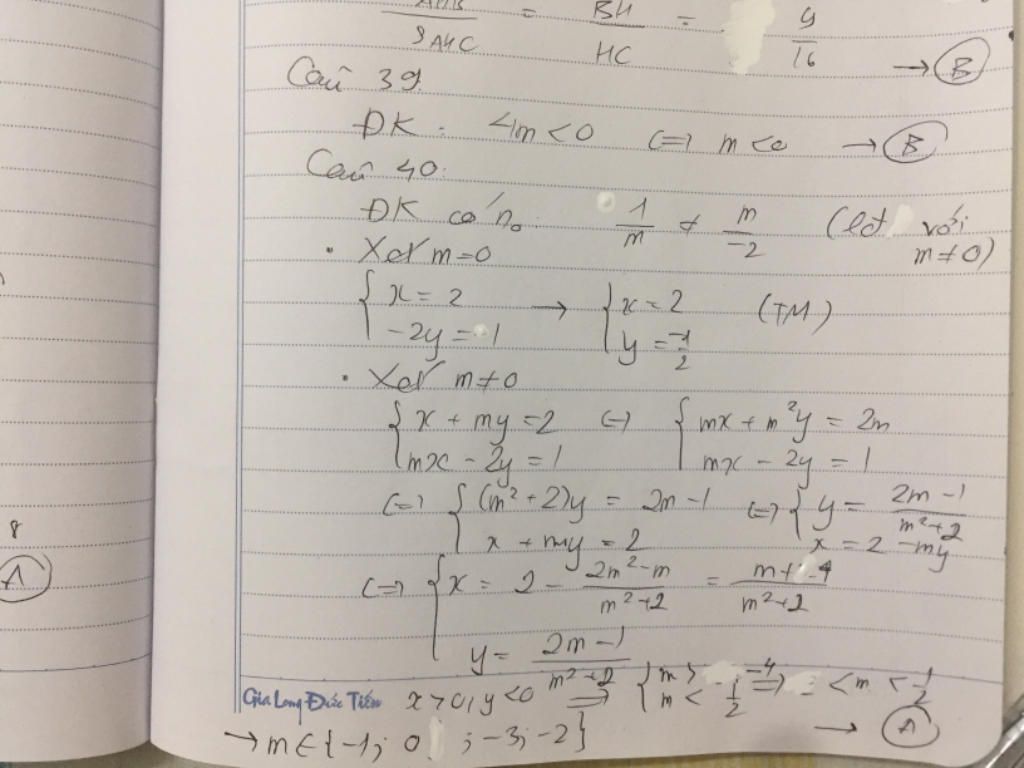 S AHC = BH / HC = 9/16 → (B)
Câu 39.
ĐK: 4m < 0 (=) m < 0 → (B)
Câu 40.
ĐK có n₀: 1/m ≠ m/-2 (let với m ≠ 0)
• Xét m = 0
{ x = 2 → { x = 2 (TM)
-2y = 1 y = -1/2
• Xét m ≠ 0
{ x + my = 2 (=) { mx + m²y = 2m
mx - 2y = 1 mx - 2y = 1
(=) { (m² + 2)y = 2m - 1 (=) { y = (2m - 1)/(m² + 2)
x + my = 2 x = 2 - my
8
(A)
(=) { x = 2 - (2m² - m)/(m² + 2) = (m + 4)/(m² + 2)
y = (2m - 1)/(m² + 2)
Gia Long Đức Tiến x > 0, y < 0 => { m > -4 => < m < 1/2
m < 1/2
→ m ∈ {-1; 0 ; -3; -2} → (A)